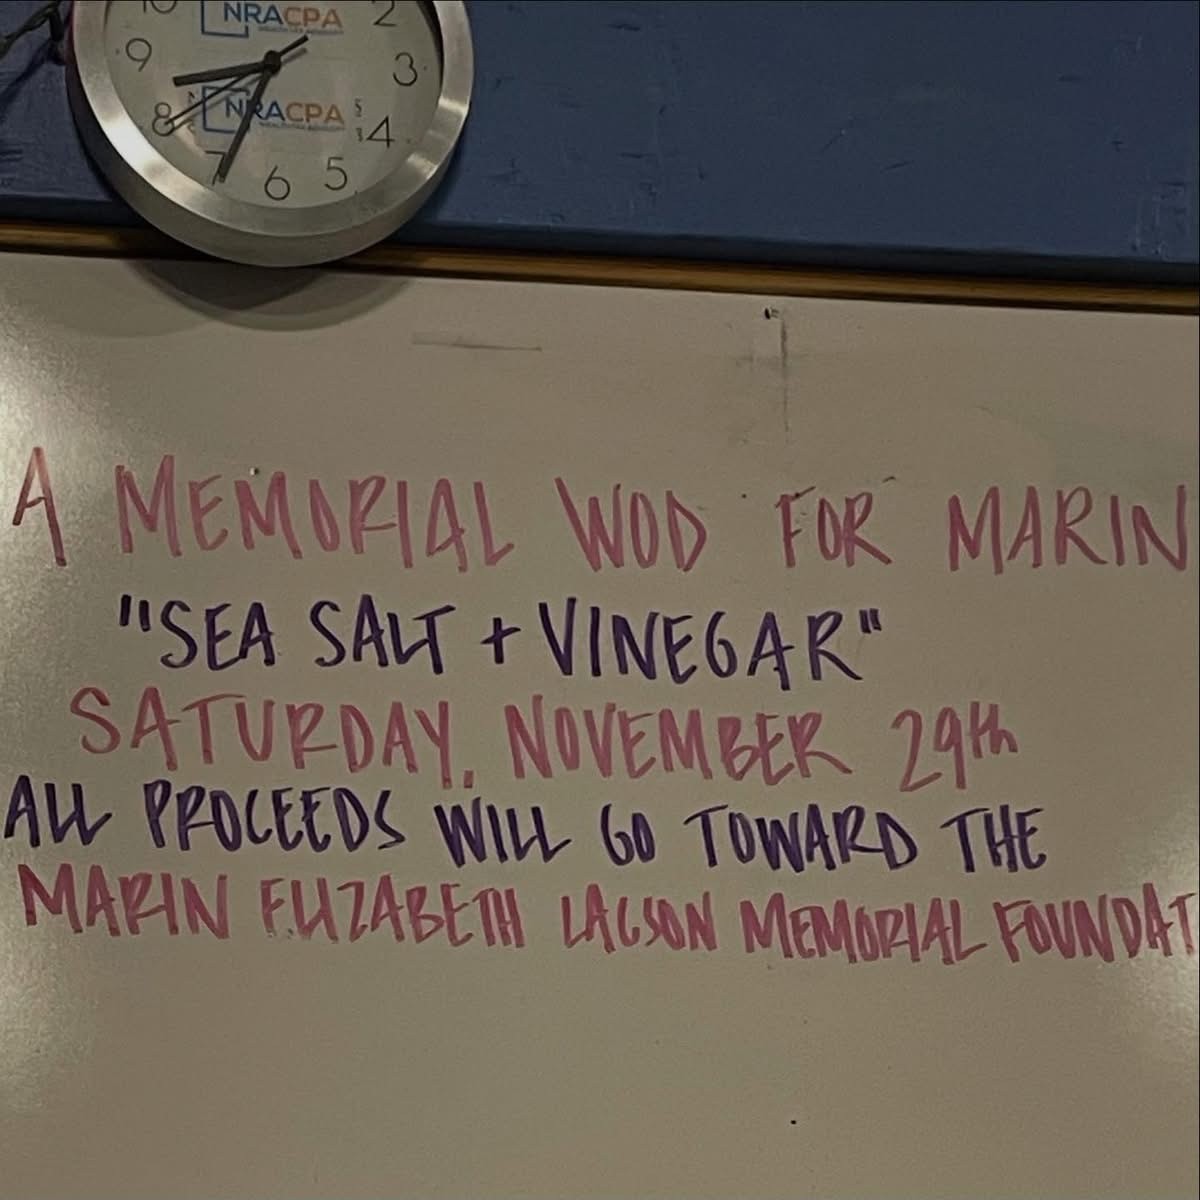 NRACPA
2
9
3
NRACPA
8
4
7
6
5
A MEMORIAL WOD FOR MARIN
"SEA SALT + VINEGAR"
SATURDAY, NOVEMBER 29th
ALL PROCEEDS WILL GO TOWARD THE
MARIN ELIZABETH LACSON MEMORIAL FOUNDAT